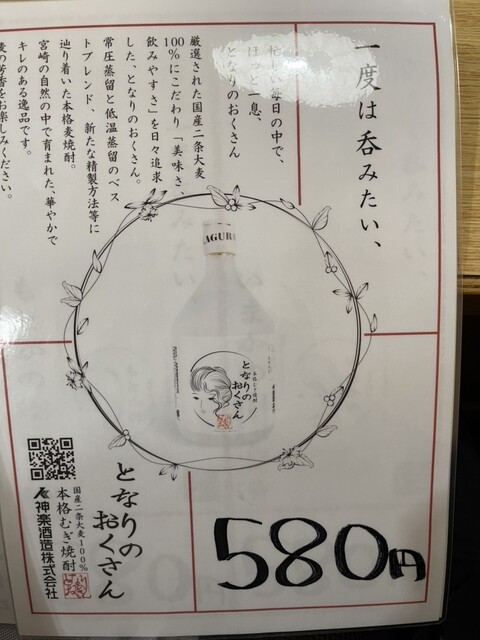 一度は呑みたい、
忙しい毎日の中で、
ほっと一息、
となりのおくさん
厳選された国産二条大麦
100%にこだわり「美味さ、
飲みやすさ」を日々追求
した、となりのおくさん。
常圧蒸留と低温蒸留のベス
トブレンド、新たな精製方法等に
辿り着いた本格麦焼酎。
宮崎の自然の中で育まれた、華やかで
キレのある逸品です。
麦の芳香をお楽しみください。
KAGURA
となりの
おくさん
本格むぎ焼酎
となりの
おくさん
国産二条大麦100%
本格むぎ焼酎
神楽酒造株式会社
580円